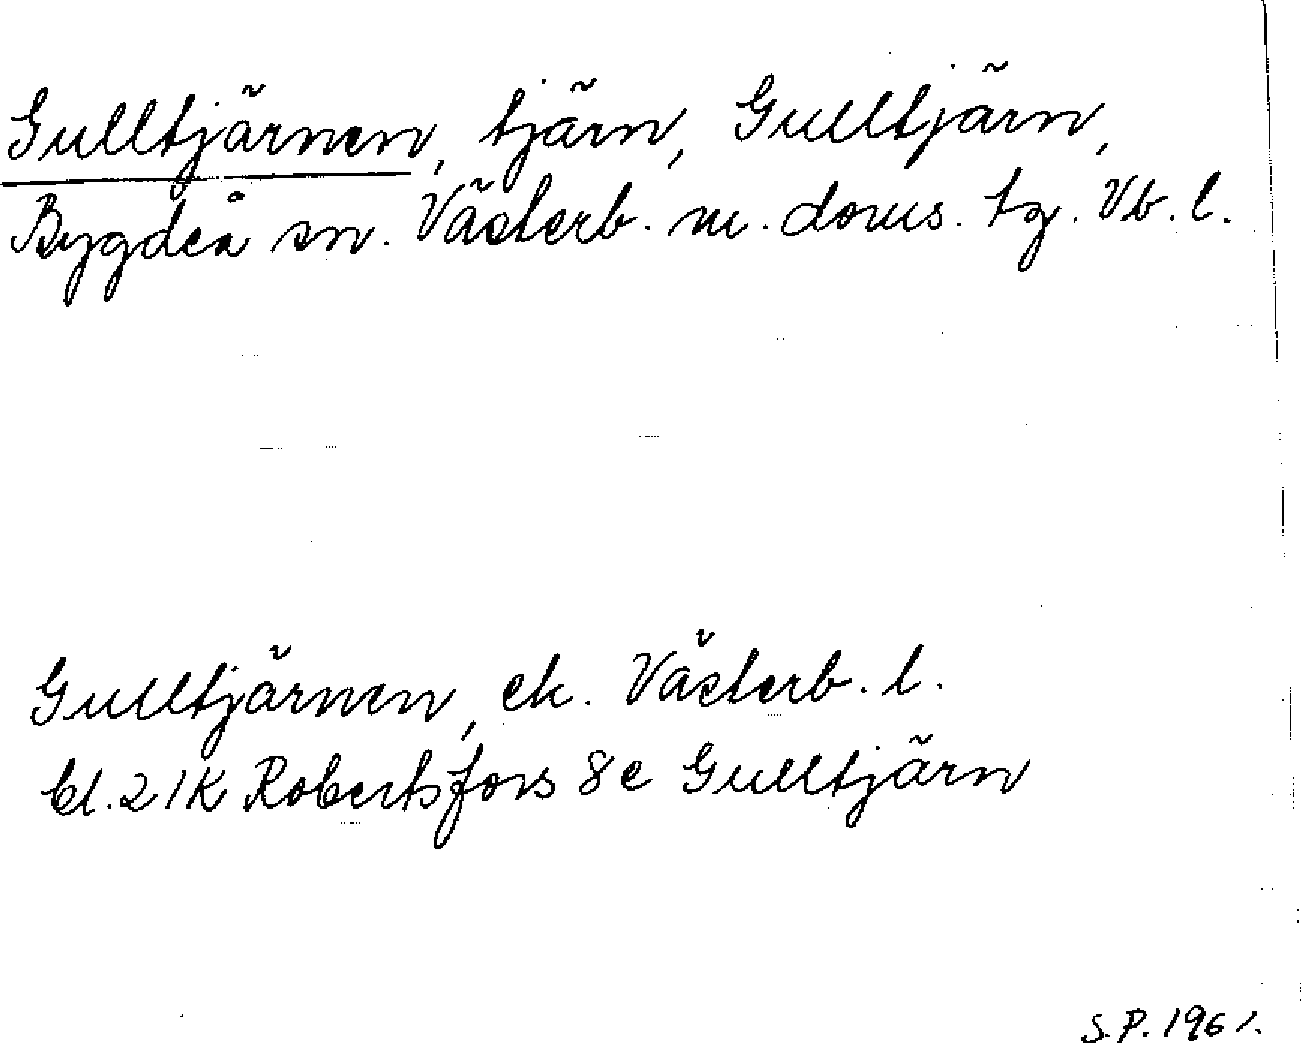 Gulltjärnen, tjärn, Gulltjärn,
Bygdeå sn. Västerb. m. doms. tg. Vb. l.
Gulltjärnen, ek. Västerb. l.
bl. 21K Robertsfors 8e Gulltjärn
S.P. 1961.